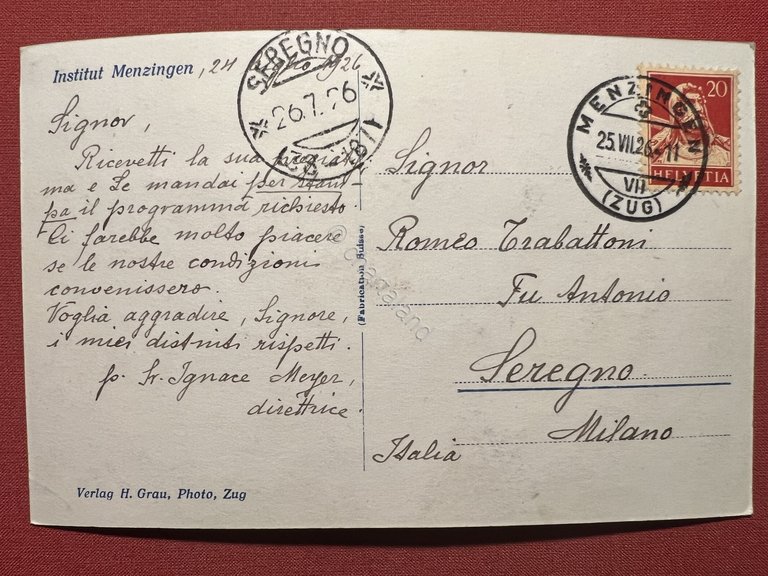 Institut Menzingen, 24 luglio 1926
Signor,
Ricevetti la sua
ma e Le mandai per stam-
pa il programma richiesto
Ci farebbe molto piacere
se le nostre condizioni
convenissero.
Voglia aggradire, Signore,
i miei distinti rispetti.
p. Sr. Ignace Meyer,
direttrice.
Verlag H. Grau, Photo, Zug
(Fabrication Suisse)
SEREGNO
26.7.26
MENZINGEN
25.VII.26.-11
VII
(ZUG)
20
HELVETIA
Signor
Romeo Trabattoni
Fu Antonio
Seregno
Milano
Italia